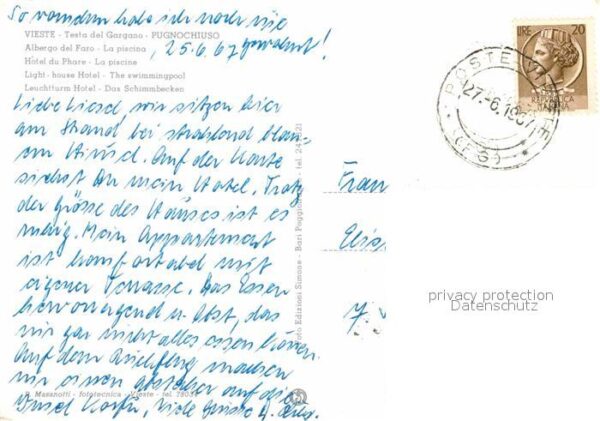 So vornehm habe ich noch nie
VIESTE - Testa del Gargano - PUGNOCHIUSO
25.6.67 gewohnt!
Albergo del Faro - La piscina
Hôtel du Phare - La piscine
Light-house Hotel - The swimmingpool
Leuchtturm Hotel - Das Schimmbecken
Liebe Liesel, wir sitzen hier
am Strand bei strahlend blau-
em Himmel. Auf der Karte
siehst Du mein Hotel. Trotz
der Grösse des Hauses ist es
ruhig. Mein Appartement
ist komfortabel mit
eigener Terrasse. Das Essen
hervorragend u. Obst, das
wir gar nicht alles essen können.
Auf dem Rückflug machen
wir einen Abstecher auf die
Insel Korfu. Viele Grüsse
Masanotti - fototecnica - Vieste - tel. 7803
Foto Edizioni Simone - Bari Poggio - tel.
Frau
Elis
7.
LIRE 20
REPUBBLICA ITALIANA
POSTE VIESTE
27.-6.1967
(FG)
privacy protection
Datenschutz